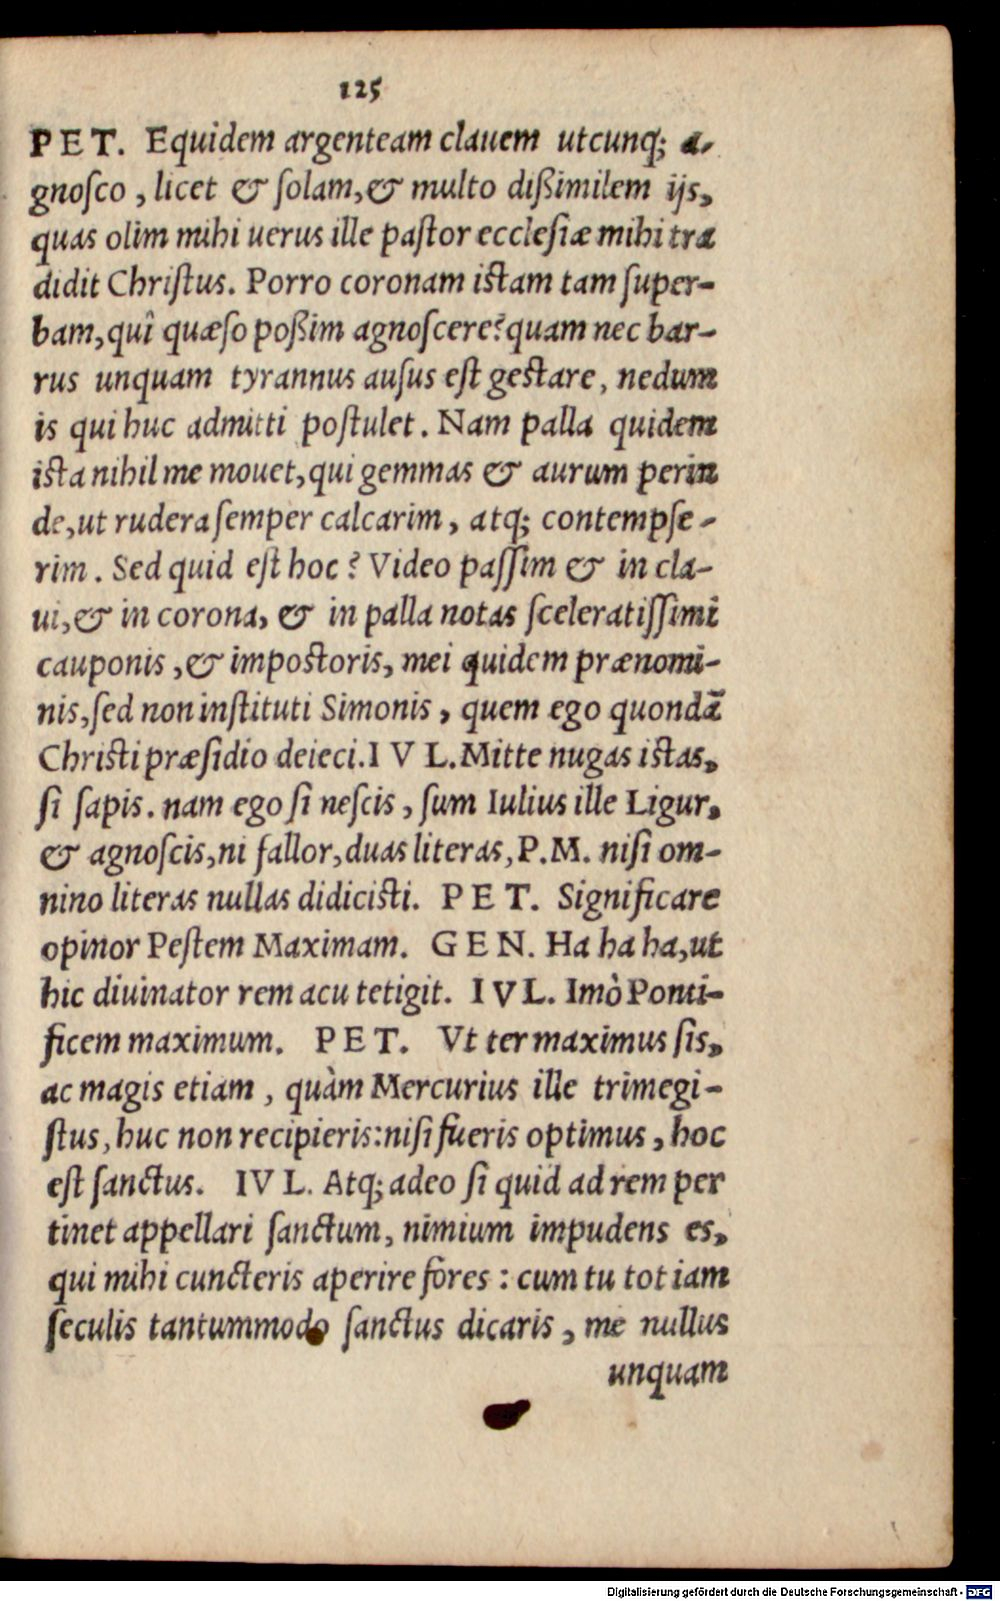 125
PET. Equidem argenteam clauem utcunq; a-
gnoſco, licet & ſolam, & multo dißimilem ijs,
quas olim mihi uerus ille paſtor eccleſiæ mihi tra
didit Chriſtus. Porro coronam iſtam tam ſuper-
bam, quî quæſo poßim agnoſcere? quam nec bar-
rus unquam tyrannus auſus eſt geſtare, nedum
is qui huc admitti poſtulet. Nam palla quidem
iſta nihil me mouet, qui gemmas & aurum perin
de, ut rudera ſemper calcarim, atq; contempſe-
rim. Sed quid eſt hoc? Video paſſim & in cla-
ui, & in corona, & in palla notas ſceleratiſſimi
cauponis, & impoſtoris, mei quidem prænomi-
nis, ſed non inſtituti Simonis, quem ego quondã
Chriſti præſidio deieci. IVL. Mitte nugas iſtas,
ſi ſapis. nam ego ſi neſcis, ſum Iulius ille Ligur,
& agnoſcis, ni fallor, duas literas, P.M. niſi om-
nino literas nullas didiciſti. PET. Significare
opinor Peſtem Maximam. GEN. Ha ha ha, ut
hic diuinator rem acu tetigit. IVL. Imò Ponti-
ficem maximum. PET. Vt ter maximus ſis,
ac magis etiam, quàm Mercurius ille trimegi-
ſtus, huc non recipieris: niſi fueris optimus, hoc
eſt ſanctus. IVL. Atq; adeo ſi quid ad rem per
tinet appellari ſanctum, nimium impudens es,
qui mihi cuncteris aperire fores: cum tu tot iam
ſeculis tantummodo ſanctus dicaris, me nullus
unquam
Digitalisierung gefördert durch die Deutsche Forschungsgemeinschaft - DFG